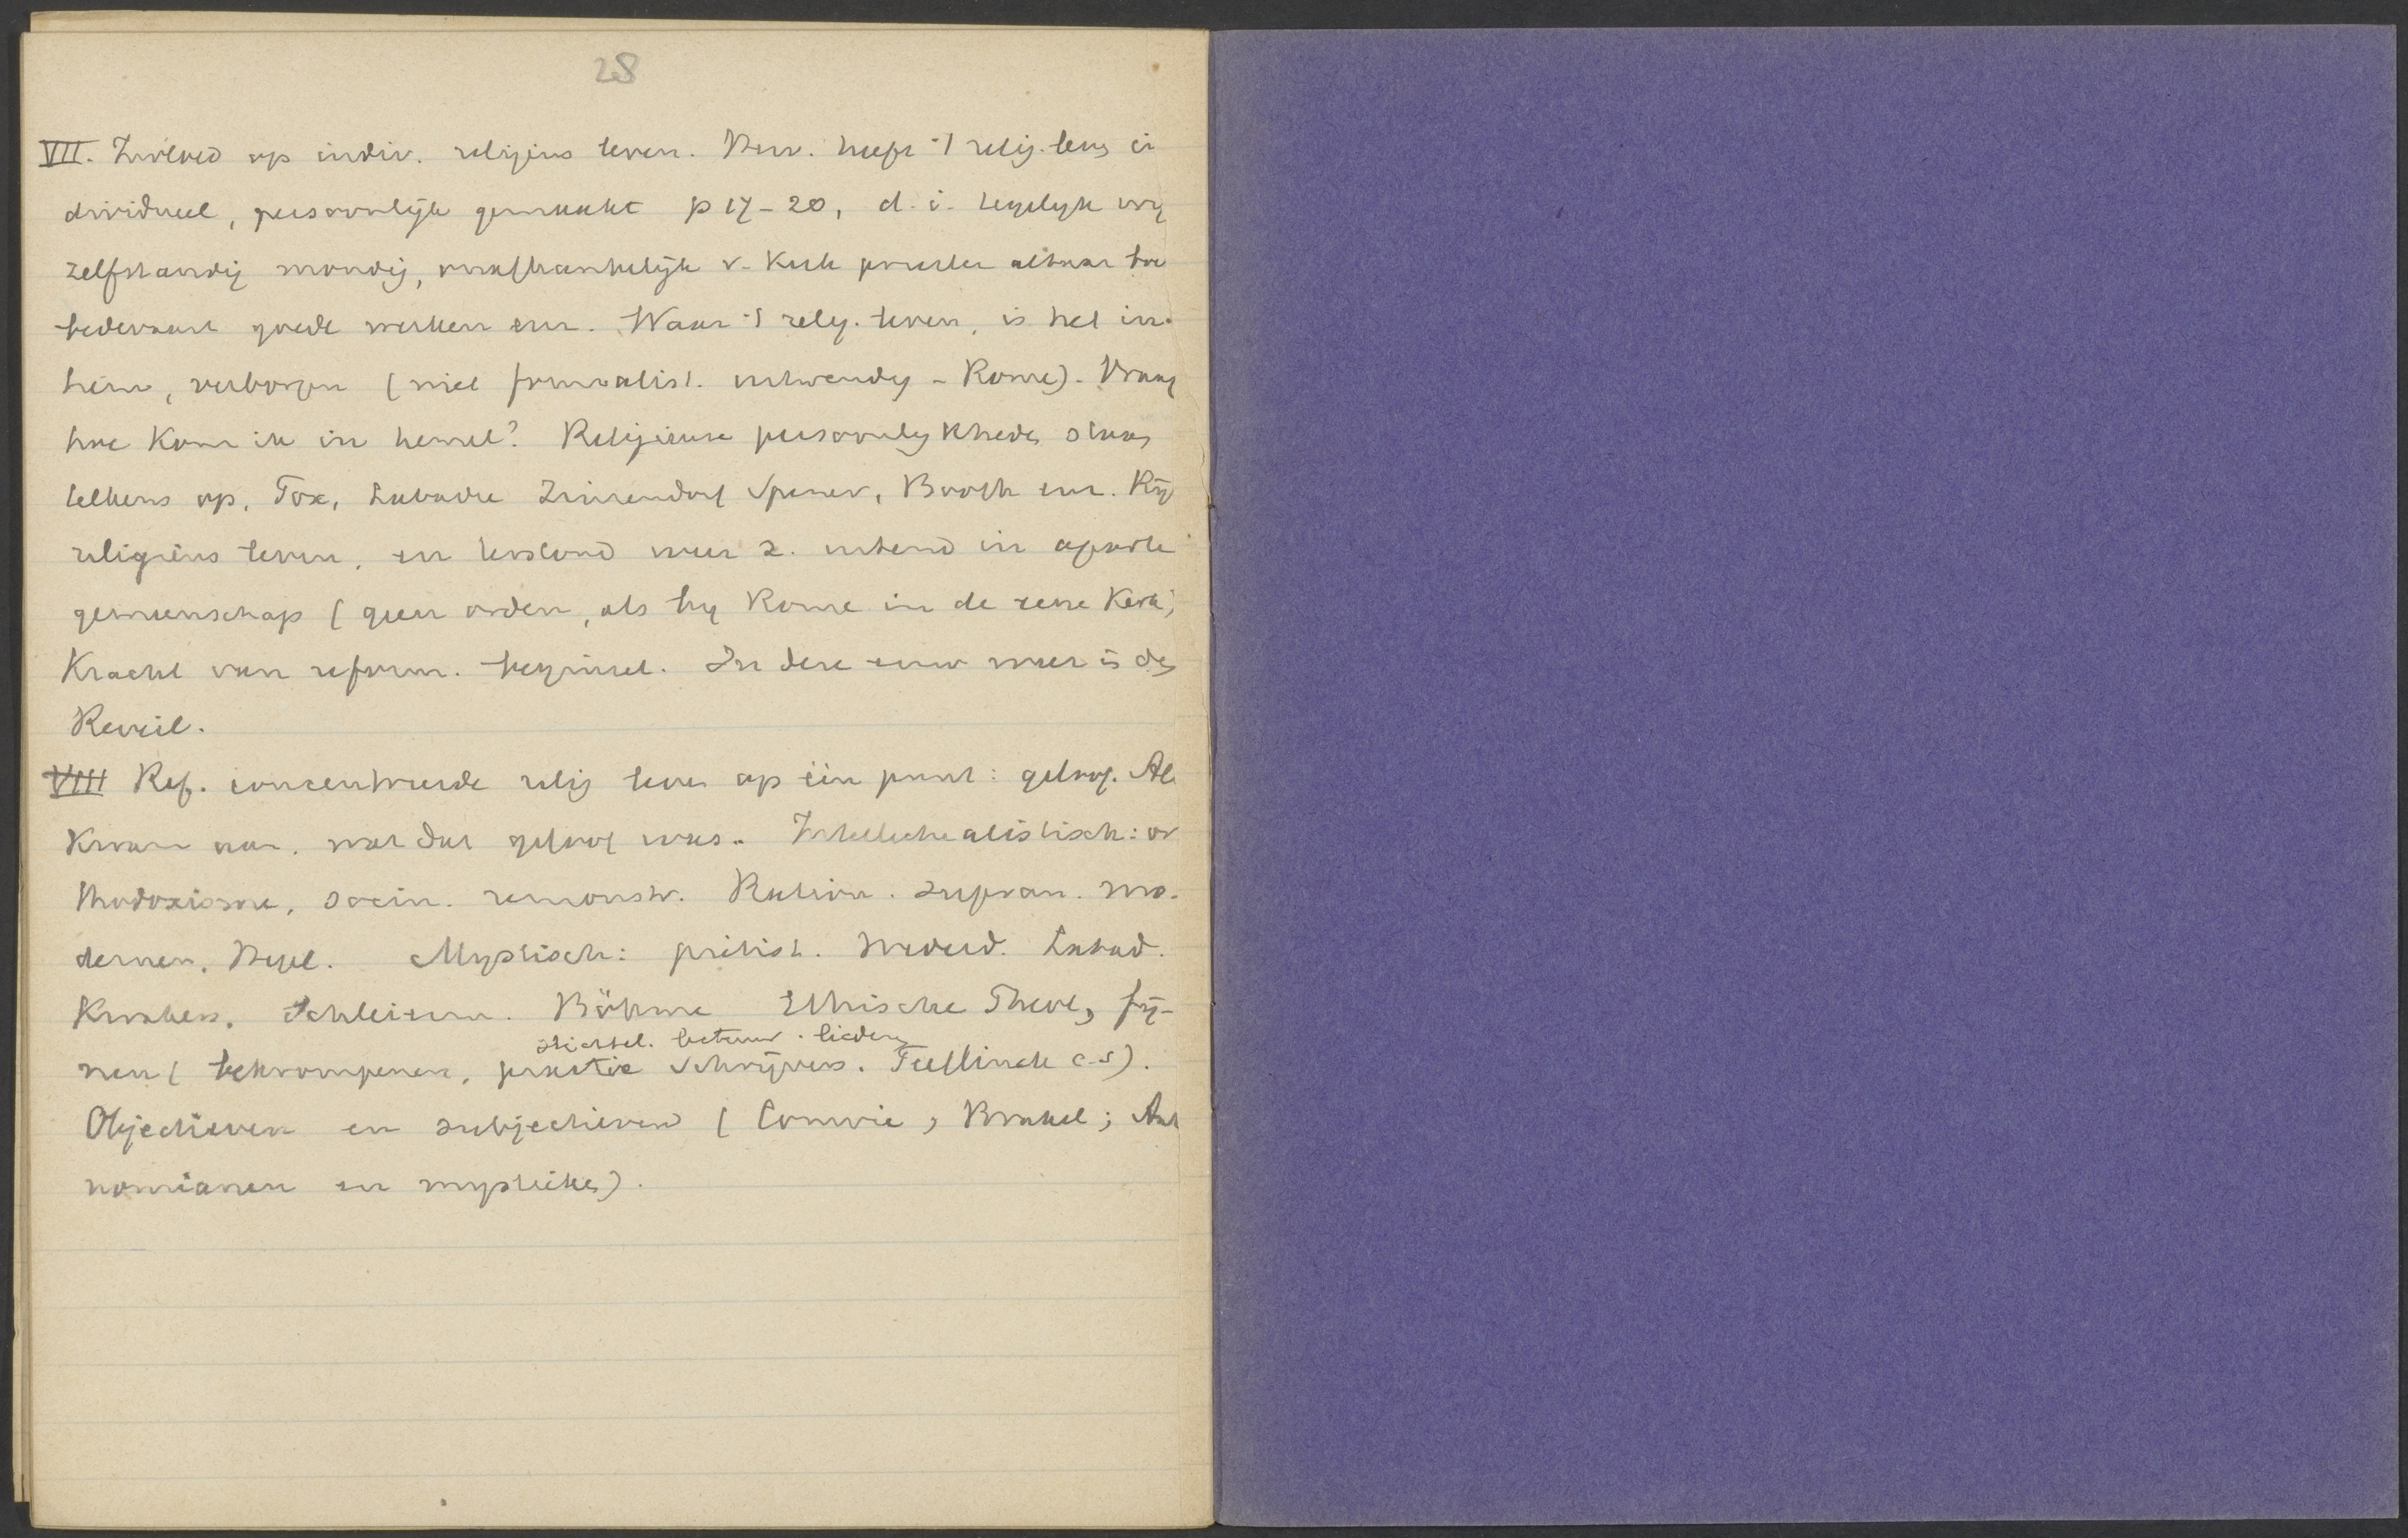 28
VII. Invloed op indiv. religieus leven. Herv. heeft 't relig. leven in
dividueel, persoonlijk gemaakt p 17-20, d. i. tegelijk vrij
zelfstandig mondig, onafhankelijk v. Kerk priester altaar
bedevaart goede werken enz. Waar 't relig. leven, is het in.
tiem, verborgen (niet formalist. uitwendig - Rome). Vraag
hoe kom ik in hemel? Religieuse persoonlijkheden staan
telkens op, Fox, Labadie Zinzendorf Spener, Booth enz. Rijk
religieus leven, en terstond weer z. uitend in aparte
gemeenschap (geen orden, als bij Rome in de eene Kerk)
Kracht van reform. beginsel. In deze eeuw weer is de
Reveil.
VIII Ref. concentreerde relig leven op één punt: geloof. Al
kwam aan. wat dat geloof was. Intellectualistisch: or
thodoxisme, socin. remonstr. Ration. supran. mo-
dernen, Hegel. Mystisch: piëtist. wederd. Labad.
Kwakers. Schleierm. Böhme Ethische Theol, fij-
stichtel. lectuur. liederen
nen (bekrompenen, practic schrijvers. Teellinck c.s).
Objectieven en subjectieven (Comrie, Brakel; Anti
nomianen en mystieken).